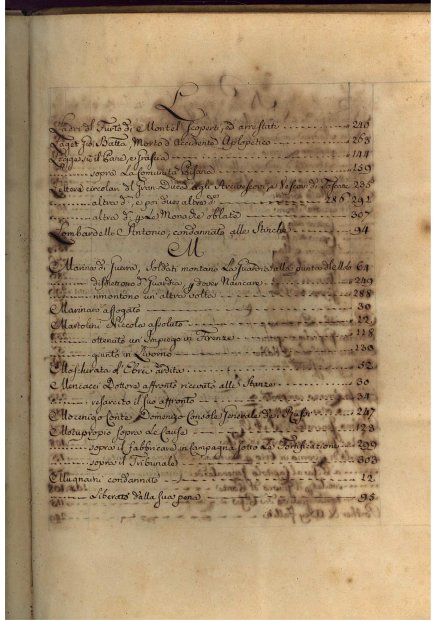 L
Ladri del Furto di Montel scoperti, ed arrestati 240
Laget Gio: Batta Morto d'Accidente Aplopetico 263
Legge su il Pane, e Grascia 144
sopra La Comunità Pisana 159
Lettera circolar del Gran Duca agli Arcivescovi, e Vescovi di Tosca. 235
altra di, e poi due altre di 286 291
altra di p. Le Monache oblate 307
Lombardelli Antonio, condannato alle Stinche 94
M
Marina di Guerra, Soldati montano La Guardia alla punta di Molo 64
dismettono di Guardia p. dover Navicare 249
rimontono un'altra volta 288
Marinaro affogato 30
Martolini Niccola assoluto 22
ottenuto un Impiego in Firenze 118
giunto in Livorno 130
Mascherata d'Ebrei ardita 52
Mencacci Dottore affronto ricevuto alle Stanze 30
resarcito il suo affronto 34
Mocenigo Conte Domenico Console Generale di Russia 247
Motuproprio sopra Le Cause 123
sopra il fabbricare in Campagna sotto La Fortificazione 299
sopra il Tribunale 303
Mugnaini condannato 12
Liberato dalla sua pena 95